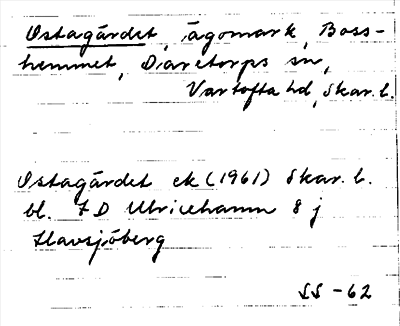 Ostagärdet, ägomark, Boss-
hemmet, Daretorps sn,
Vartofta hd, Skar. l.
Ostagärdet ek (1961) Skar. l.
bl. 7 D Ulricehamn 8 j
Havsjöberg
SS -62